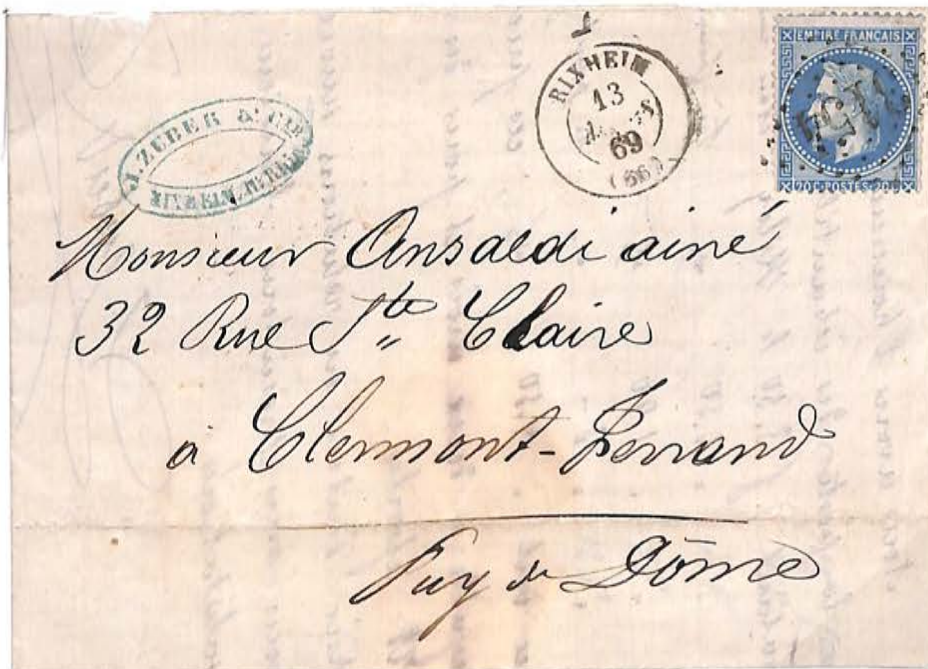 J. ZUBER & CIE
RIXHEIM
RIXHEIM
13
69
(66)
EMPIRE FRANÇAIS
20C POSTES 20C
Monsieur Ansaldi ainé
32 Rue Ste Claire
à Clermont-Ferrand
Puy de Dôme